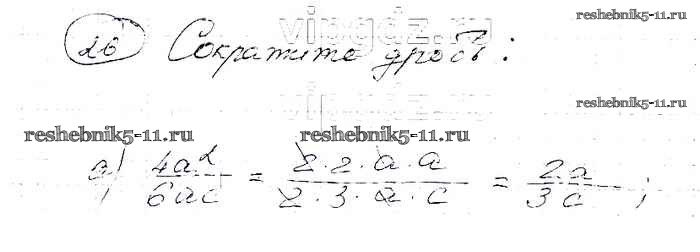 vipgdz.ru
reshebnik5-11.ru
26 Сократите дробь:
vipgdz.ru
reshebnik5-11.ru
reshebnik5-11.ru reshebnik5-11.ru
а) 4a²/6ac = 2·2·a·a/2·3·a·c = 2a/3c;